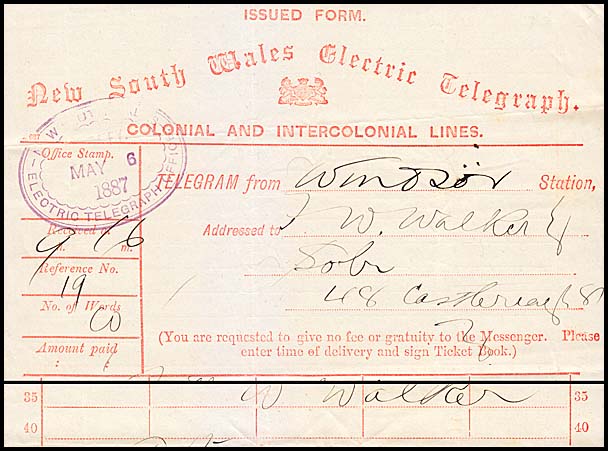 ISSUED FORM.
New South Wales Electric Telegraph.
COLONIAL AND INTERCOLONIAL LINES.
Office Stamp.
MAY 6
1887
ELECTRIC TELEGRAPH OFFICE
TELEGRAM from Windsor Station,
Addressed to W. Walker
Received at
9 16
m.
Reference No.
19
No. of Words
Castlereagh St
Amount paid
: :
(You are requested to give no fee or gratuity to the Messenger. Please
enter time of delivery and sign Ticket Book.)
35 W Walker 35
40 40